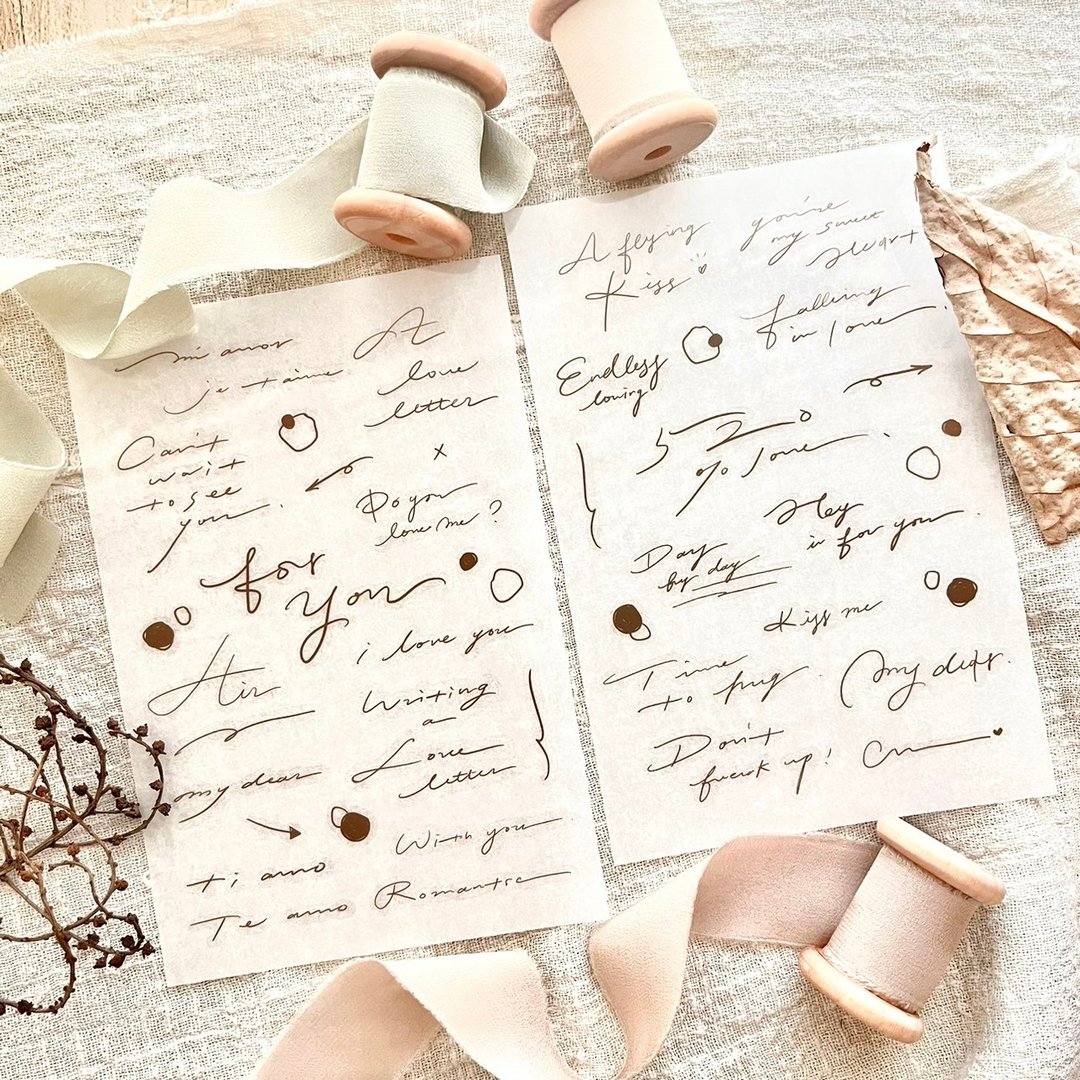 mi amor
A
je t'aime
love
letter
Can't
wait
to see
you.
x
Do you
love me?
for
you
i love you
Air
Writing
a
Love
letter
my dear
With you
ti amo
Te amo
Romantic
A flying
Kiss
you're
my sweet
Heart
falling
in love.
Endless
loving
520
% love.
Hey
is for you.
Day
by day
Kiss me
Time
to hug.
My dear.
Don't
up!